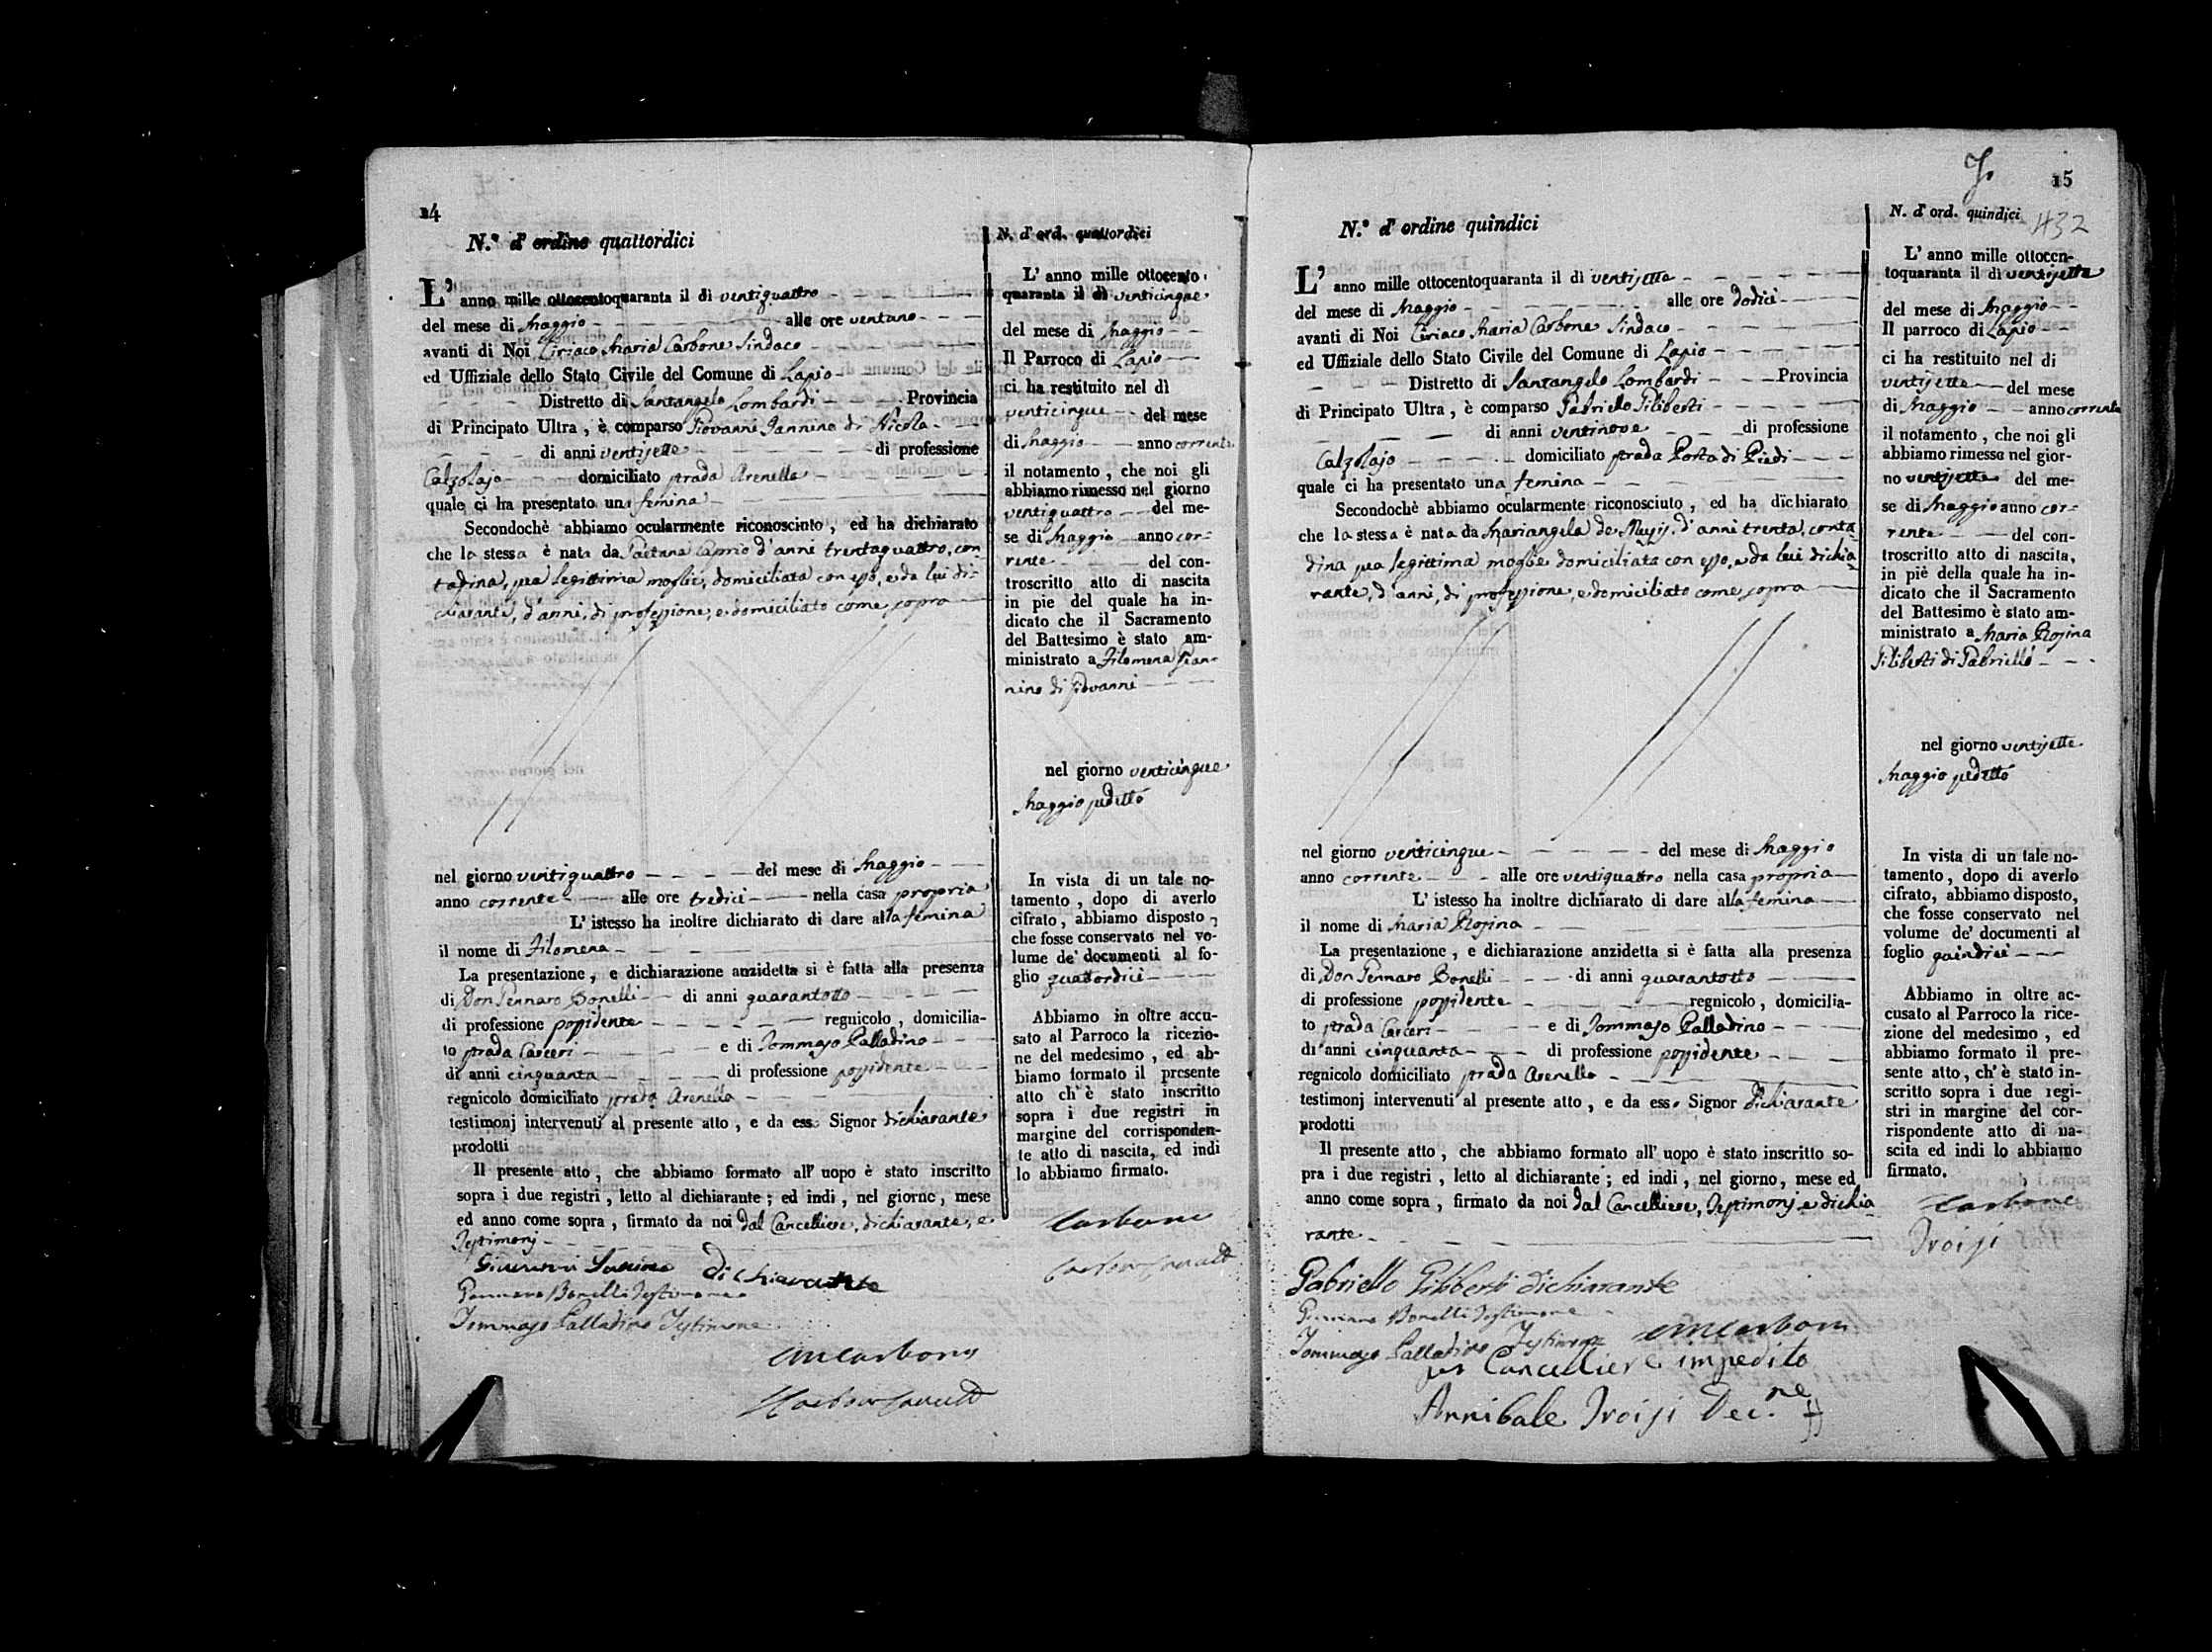 14
N.º d' ordine quattordici
L' anno mille ottocentoquaranta il dì ventiquattro
del mese di Maggio alle ore ventuno
avanti di Noi Ciriaco Maria Carbone Sindaco
ed Uffiziale dello Stato Civile del Comune di Lapio
Distretto di Santangelo Lombardi Provincia
di Principato Ultra, è comparso Giovanni Iannino di Nicola
di anni ventisette di professione
Calzolajo domiciliato strada Arenella
quale ci ha presentato una femina
Secondochè abbiamo ocularmente riconosciuto, ed ha dichiarato
che la stessa è nata da Gaetana Caprio d'anni trentaquattro, con-
tadina, sua legittima moglie, domiciliata con esso, e da lui di-
chiarante, d'anni, di professione, e domiciliato come sopra
nel giorno ventiquattro del mese di Maggio
anno corrente alle ore tredici nella casa propria
L' istesso ha inoltre dichiarato di dare alla femina
il nome di Filomena
La presentazione, e dichiarazione anzidetta si è fatta alla presenza
di Don Gennaro Bonelli di anni quarantotto
di professione possidente regnicolo, domicilia-
to strada Carceri e di Tommaso Palladino
di anni cinquanta di professione possidente
regnicolo domiciliato strada Arenella
testimonj intervenuti al presente atto, e da esso Signor dichiarante
prodotti
Il presente atto, che abbiamo formato all' uopo è stato inscritto
sopra i due registri, letto al dichiarante; ed indi, nel giorno, mese
ed anno come sopra, firmato da noi dal Cancelliere, dichiarante, e
Testimonj
Giovanni Iannino dichiarante
Gennaro Bonelli Testimone
Tommaso Palladino Testimone
CMCarbone
N. d' ord. quattordici
L' anno mille ottocento
quaranta il dì venticinque
del mese di Maggio
Il Parroco di Lapio
ci ha restituito nel dì
venticinque del mese
di Maggio anno corrente
il notamento, che noi gli
abbiamo rimesso nel giorno
ventiquattro del me-
se di Maggio anno cor-
rente del con-
troscritto atto di nascita
in pie del quale ha in-
dicato che il Sacramento
del Battesimo è stato am-
ministrato a Filomena Ian-
nino di Giovanni
nel giorno venticinque
Maggio sudetto
In vista di un tale no-
tamento, dopo di averlo
cifrato, abbiamo disposto,
che fosse conservato nel vo-
lume de' documenti al fo-
glio quattordici
Abbiamo in oltre accu-
sato al Parroco la ricezio-
ne del medesimo, ed ab-
biamo formato il presente
atto ch' è stato inscritto
sopra i due registri in
margine del corrisponden-
te atto di nascita, ed indi
lo abbiamo firmato.
Carbone
15
432
N.º d' ordine quindici
L' anno mille ottocentoquaranta il dì ventisette
del mese di Maggio alle ore dodici
avanti di Noi Ciriaco Maria Carbone Sindaco
ed Uffiziale dello Stato Civile del Comune di Lapio
Distretto di Santangelo Lombardi Provincia
di Principato Ultra, è comparso Gabriello Filiberti
di anni ventinove di professione
Calzolajo domiciliato strada Porta di Piedi
quale ci ha presentato una femina
Secondochè abbiamo ocularmente riconosciuto, ed ha dichiarato
che la stessa è nata da Mariangela de Musis, d'anni trenta, conta-
dina sua legittima moglie domiciliata con esso, e da lui dichia-
rante, d'anni, di professione, e domiciliato come sopra
nel giorno venticinque del mese di Maggio
anno corrente alle ore ventiquattro nella casa propria
L' istesso ha inoltre dichiarato di dare alla femina
il nome di Maria Rosina
La presentazione, e dichiarazione anzidetta si è fatta alla presenza
di Don Gennaro Bonelli di anni quarantotto
di professione possidente regnicolo, domicilia-
to strada Carceri e di Tommaso Palladino
di anni cinquanta di professione possidente
regnicolo domiciliato strada Arenella
testimonj intervenuti al presente atto, e da esso Signor dichiarante
prodotti
Il presente atto, che abbiamo formato all' uopo è stato inscritto so-
pra i due registri, letto al dichiarante; ed indi, nel giorno, mese ed
anno come sopra, firmato da noi dal Cancelliere, Testimonj e dichia-
rante
Gabriello Filiberti dichiarante
Gennaro Bonelli Testimone
Tommaso Palladino Testimone CMCarbone
per Cancelliere impedito
Annibale Troisi Dec.ne
N. d' ord. quindici
L' anno mille ottocen-
toquaranta il dì ventisette
del mese di Maggio
Il parroco di Lapio
ci ha restituito nel dì
ventisette del mese
di Maggio anno corrente
il notamento, che noi gli
abbiamo rimesso nel gior-
no ventisette del me-
se di Maggio anno cor-
rente del con-
troscritto atto di nascita,
in piè della quale ha in-
dicato che il Sacramento
del Battesimo è stato am-
ministrato a Maria Rosina
Filiberti di Gabriello
nel giorno ventisette
Maggio sudetto
In vista di un tale no-
tamento, dopo di averlo
cifrato, abbiamo disposto,
che fosse conservato nel
volume de' documenti al
foglio quindici
Abbiamo in oltre ac-
cusato al Parroco la rice-
zione del medesimo, ed
abbiamo formato il pre-
sente atto, ch' è stato in-
scritto sopra i due regi-
stri in margine del cor-
rispondente atto di na-
scita ed indi lo abbiamo
firmato.
Carbone
Troisi